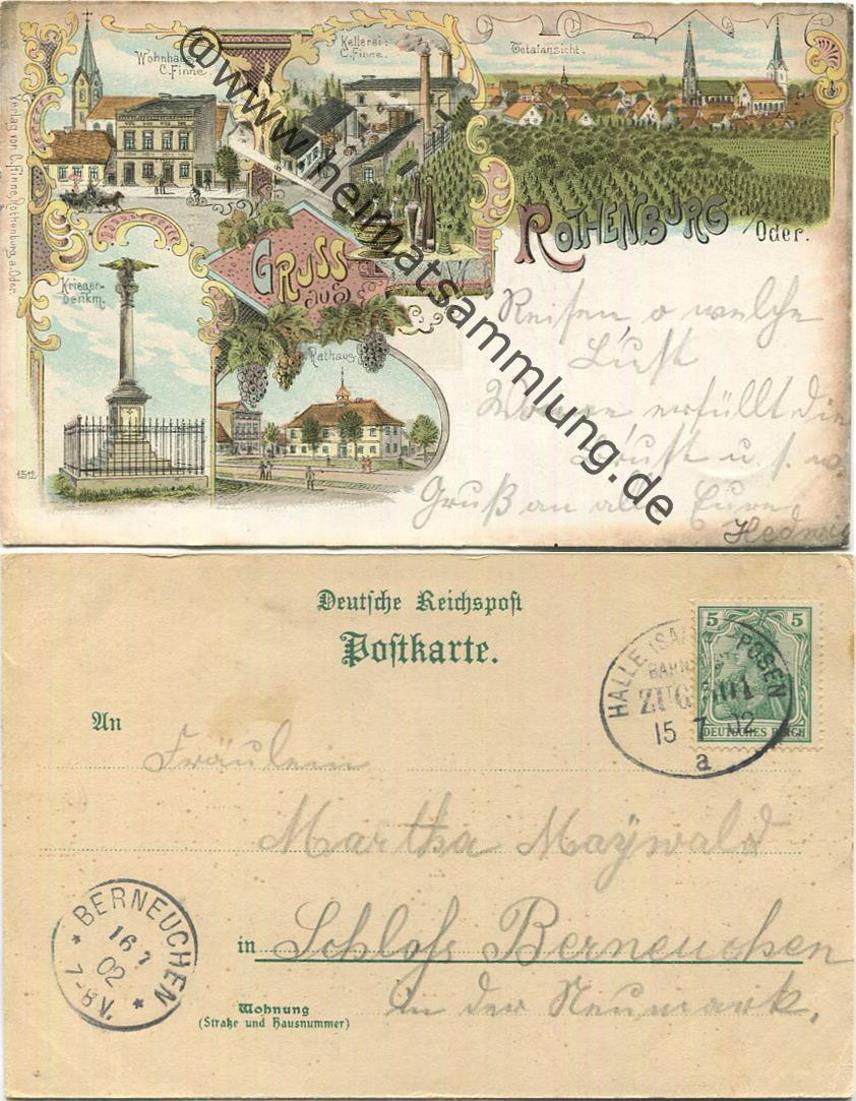 Wohnhaus:
C. Finne
Kellerei:
C. Finne.
Totalansicht.
Verlag von C. Finne, Rothenburg a. Oder.
ROTHENBURG
/Oder.
GRUSS
aus
Krieger-
denkm.
Rathaus
1512
Reisen, o welche
Lust
erfüllt die
Brust u. s. w.
Gruß an alle Eure
Hedwig
@www.heimatsammlung.de
Deutsche Reichspost
Postkarte.
HALLE (SAALE)-POSEN
BAHNPOST
ZUG
15 7 02
a
5 5
DEUTSCHES REICH
An
Fräulein
Martha Maywald
BERNEUCHEN
16 7
02
7-8V.
in Schloss Berneuchen
Wohnung
(Straße und Hausnummer)
in der Neumark.